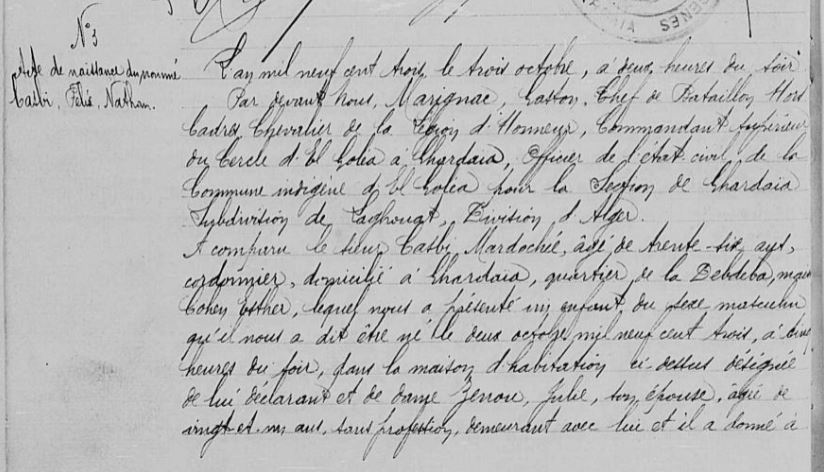 N° 3
Acte de naissance du nommé
Casbi, Félix, Nathan.
L'an mil neuf cent trois, le trois octobre, à deux heures du soir
Par devant Nous, Marignac, Gaston, Chef de Bataillon Hors
Cadres Chevalier de la Légion d'Honneur, Commandant Supérieur
du Cercle d'El Goléa à Ghardaïa, Officier de l'état civil de la
Commune indigène d'El Goléa pour la Section de Ghardaia
Subdivision de Laghouat, Division d'Alger.
A comparu le sieur Casbi, Mardochée, âgé de trente-six ans,
cordonnier, domicilié à Ghardaia, quartier de la Debdeba,
Cohen Esther, lequel nous a présenté un enfant du sexe masculin
qu'il nous a dit être né le deux octobre mil neuf cent trois, à cinq
heures du soir, dans la maison d'habitation ci-dessus désignée
de lui déclarant et de dame Zenou, Julie, son épouse, âgée de
vingt et un ans, sans profession, demeurant avec lui et il a donné à